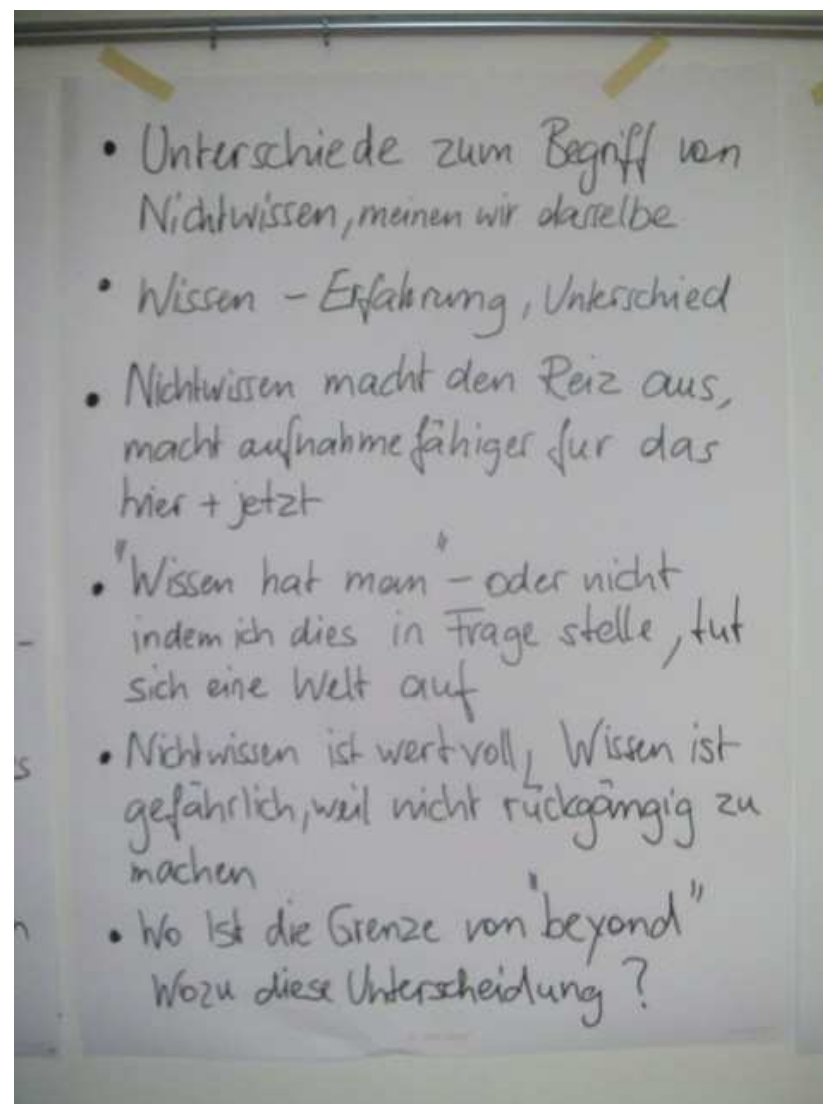 • Unterschiede zum Begriff von
Nichtwissen, meinen wir dasselbe
• Wissen – Erfahrung, Unterschied
• Nichtwissen macht den Reiz aus,
macht aufnahmefähiger fur das
hier + jetzt
• "Wissen hat man" – oder nicht
indem ich dies in Frage stelle, tut
sich eine Welt auf
• Nichtwissen ist wertvoll, Wissen ist
gefährlich, weil nicht rückgängig zu
machen
• Wo Ist die Grenze von "beyond"
Wozu diese Unterscheidung ?